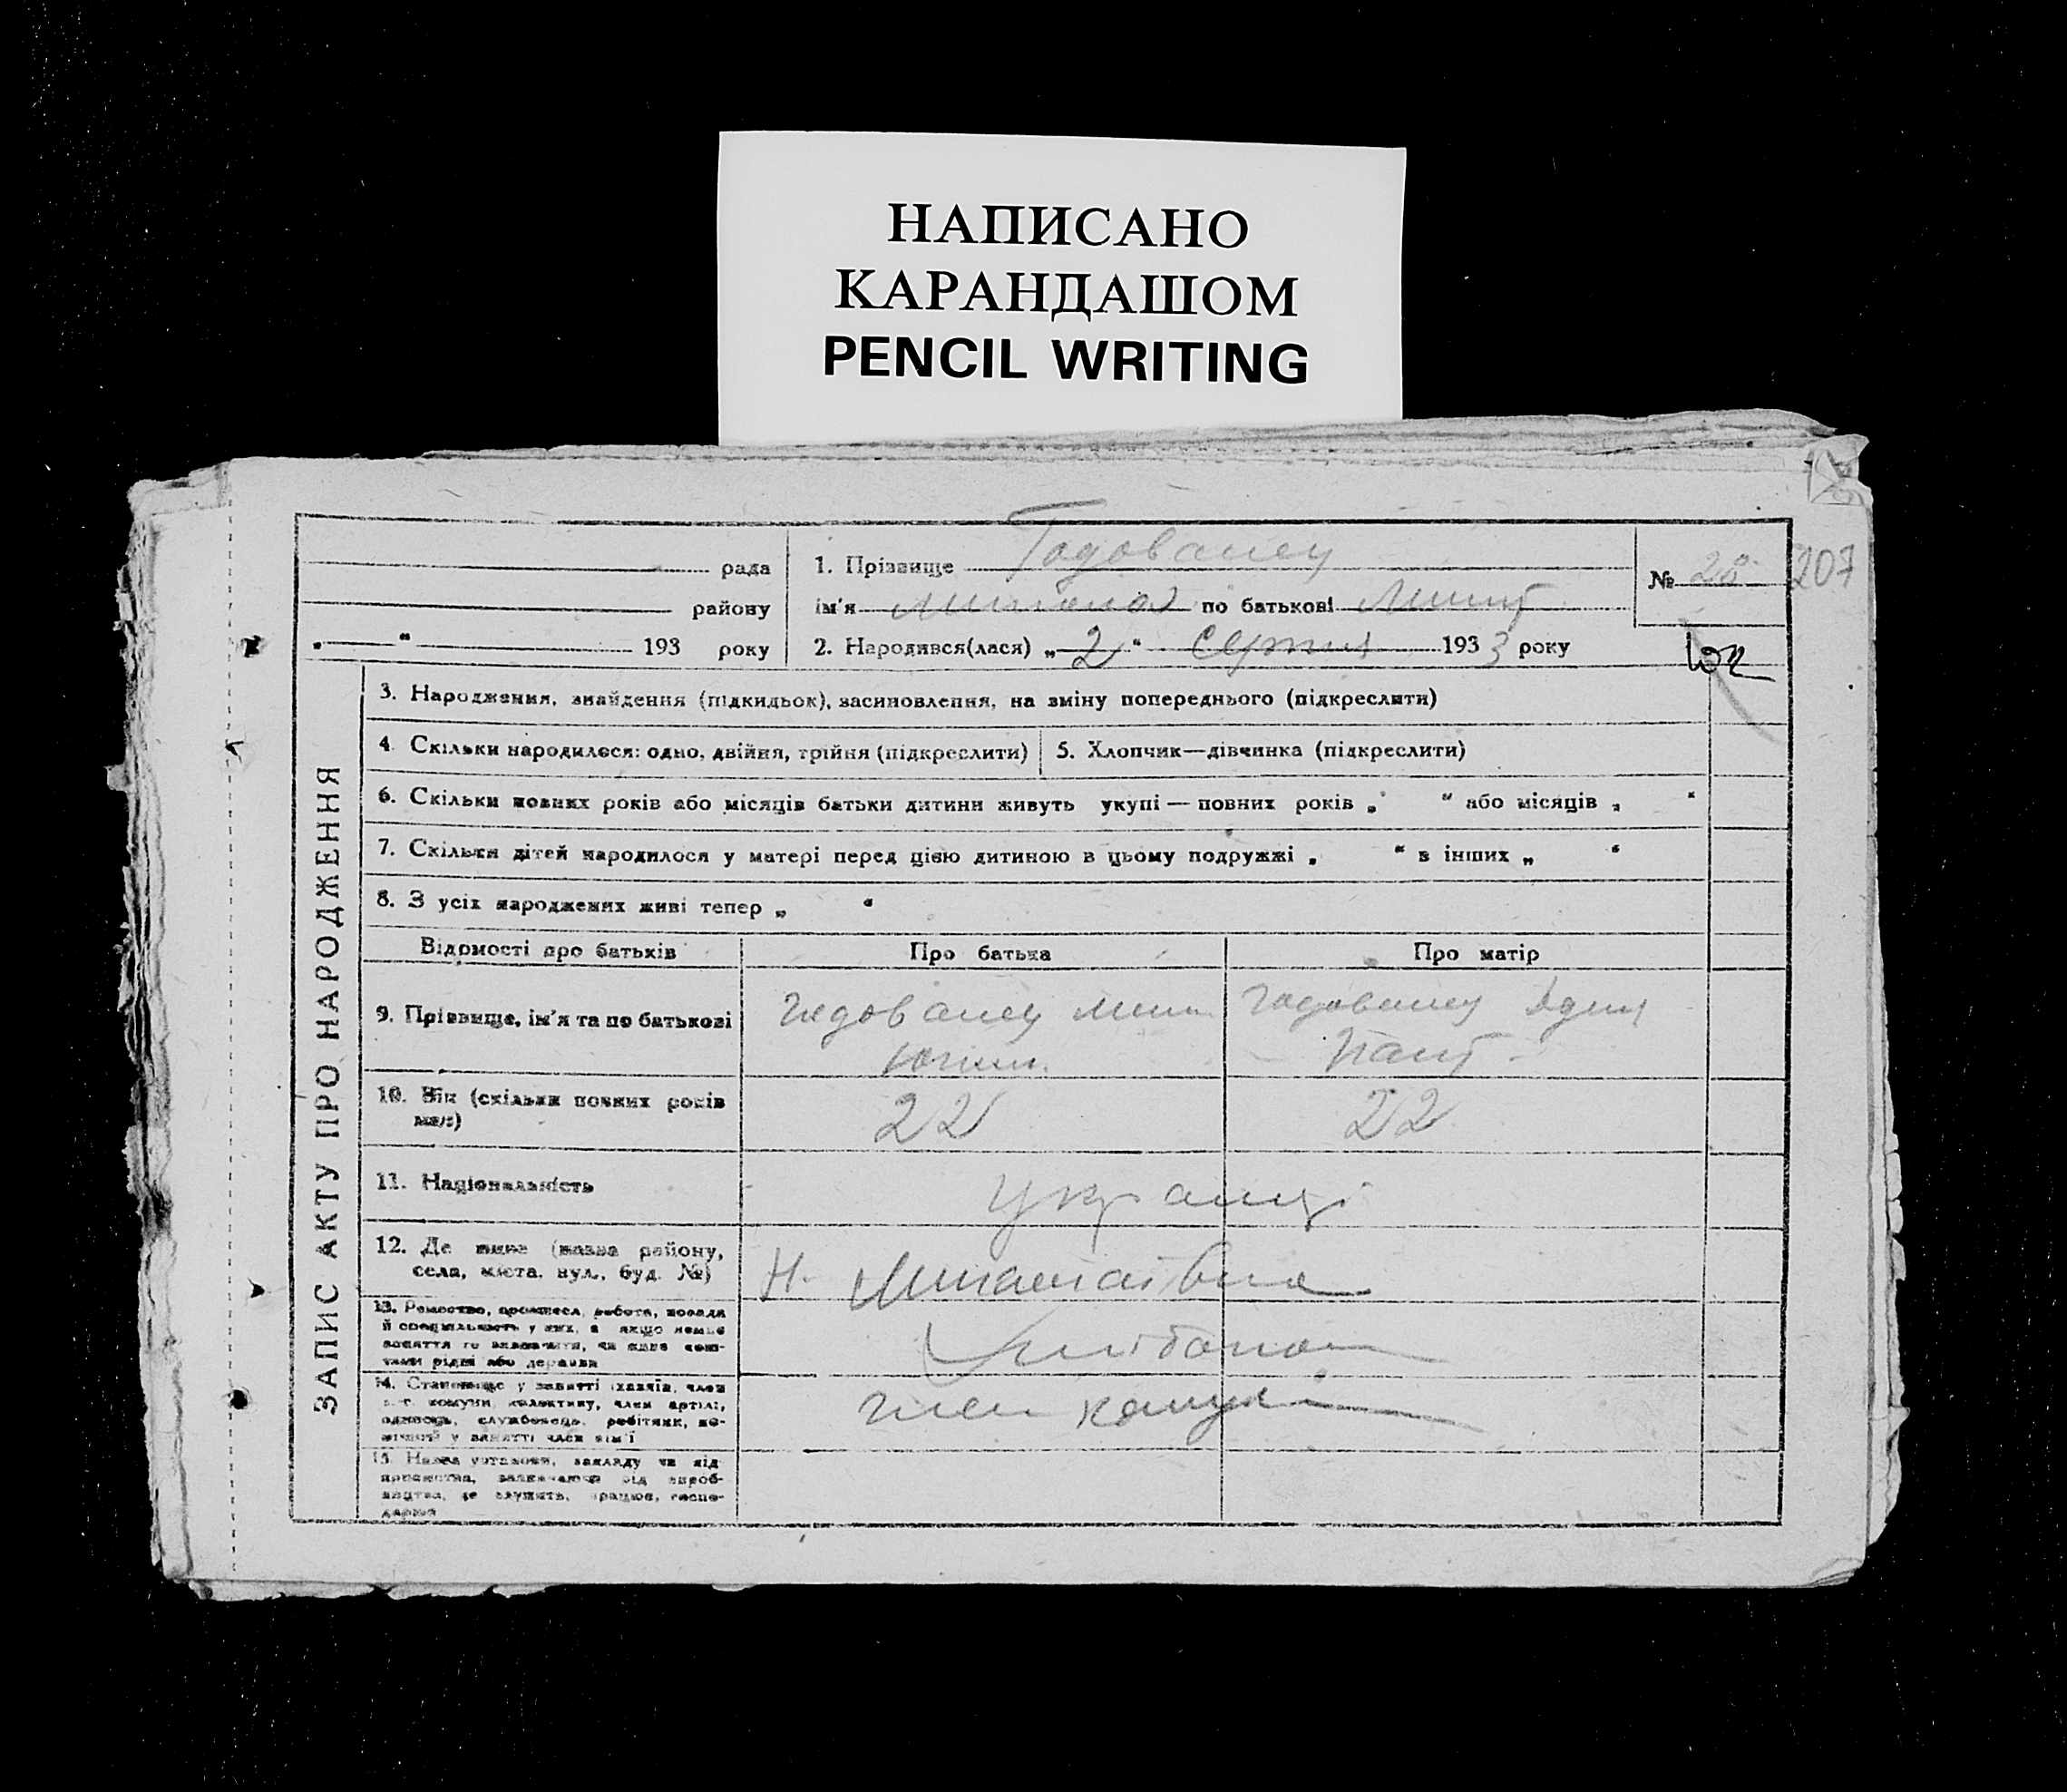 НАПИСАНО
КАРАНДАШОМ
PENCIL WRITING
рада
району
" " 193 року
1. Прізвище Годованец
ім'я по батькові
2. Народився(лася) „2" серпня 1933 року
№ 28
207
ЗАПИС АКТУ ПРО НАРОДЖЕННЯ
3. Народження, знайдення (підкидьок), засиновлення, на зміну попереднього (підкреслити)
4. Скільки народилося: одно, двійня, трійня (підкреслити)
5. Хлопчик—дівчинка (підкреслити)
6. Скільки повних років або місяців батьки дитини живуть укупі — повних років „ " або місяців „ "
7. Скільки дітей народилося у матері перед цією дитиною в цьому подружжі „ " в інших „ "
8. З усіх народжених живі тепер „ "
Відомості про батьків Про батька Про матір
9. Прізвище, ім'я та по батькові Годованец Годованец
10. Вік (скільки повних років мав) 22 22
11. Національність
12. Де живе (назва району, села, міста, вул., буд. №) Н.
13. Ремество, промисел, робота, посада
й спеціальність у них, а якщо немає
заняття то зазначити, чи живе кош-
тами рідні або держави
14. Становище у занятті (хазяїн, член
комуни, колективу, член артілі,
одинець, службовець, робітник, по-
член
15. Назва установи, закладу чи під-
приємства, зазначаючи вид вироб-
ництва, де служить, працює, госпо-
дарює